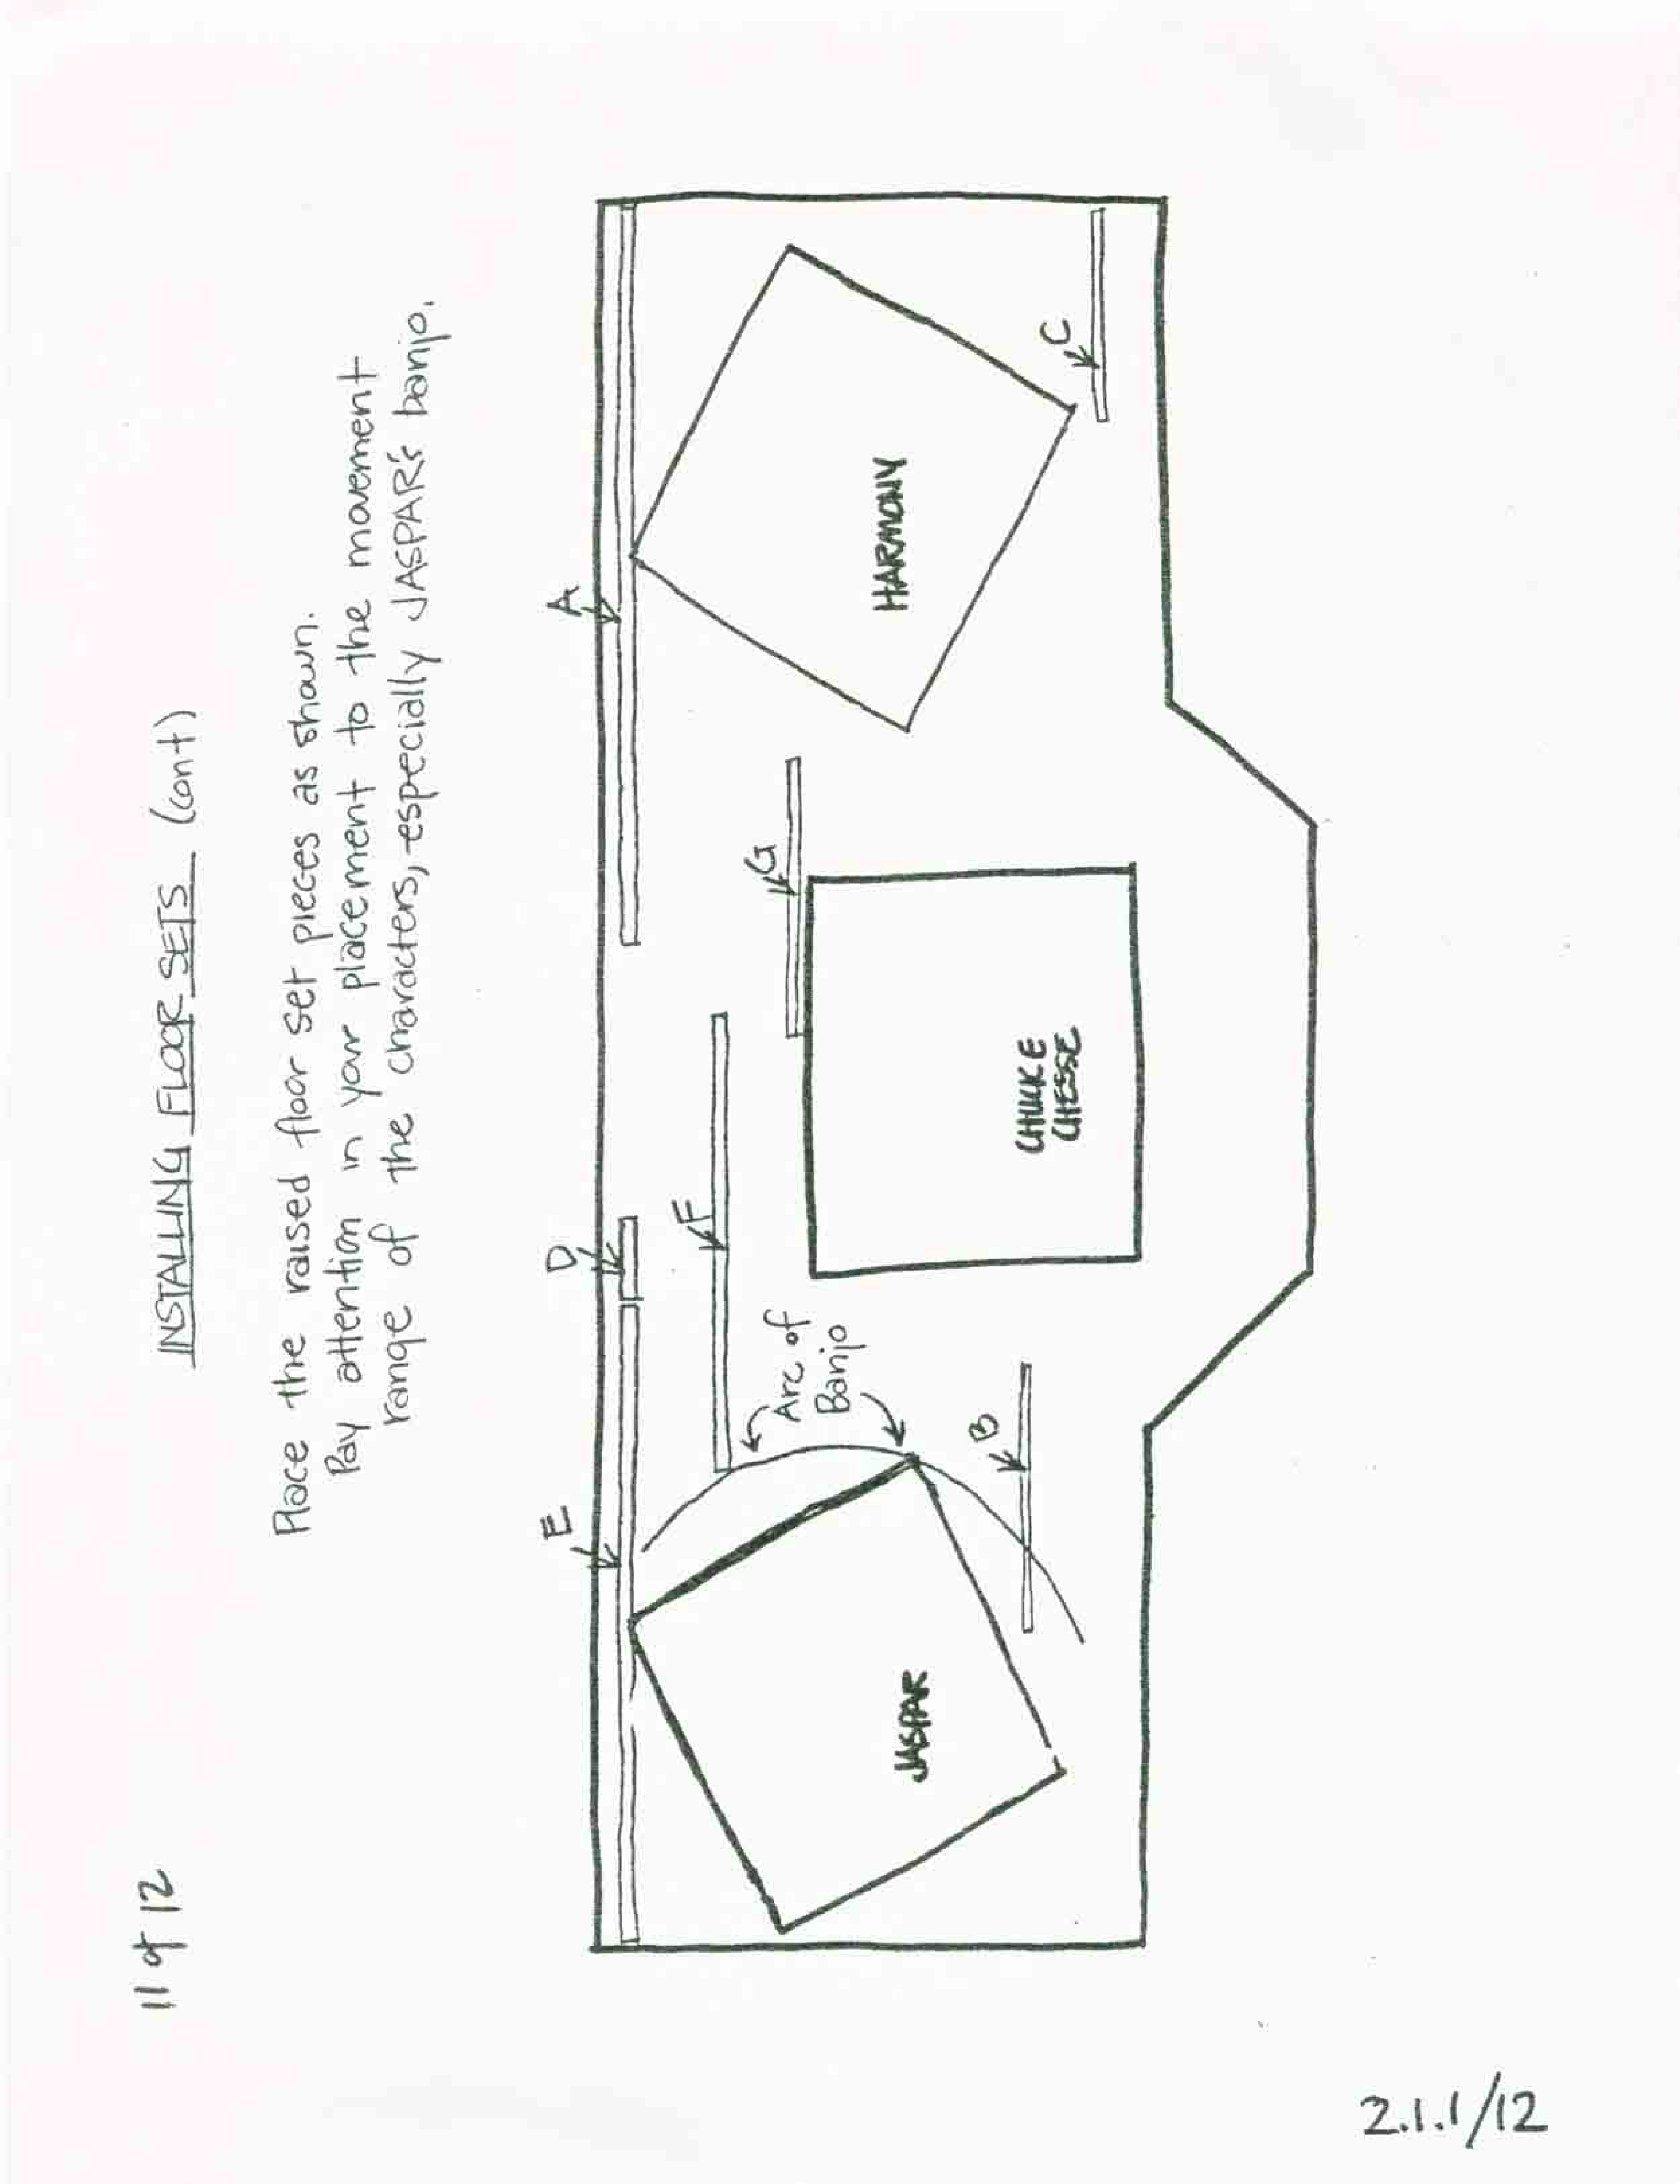 11 of 12
INSTALLING FLOOR SETS (cont)
Place the raised floor set pieces as shown.
Pay attention in your placement to the movement
range of the characters, especially JASPAR's banjo.
E
D
A
F
G
Arc of
Banjo
B
C
JASPAR
CHUCK E
CHEESE
HARMONY
2.1.1/12